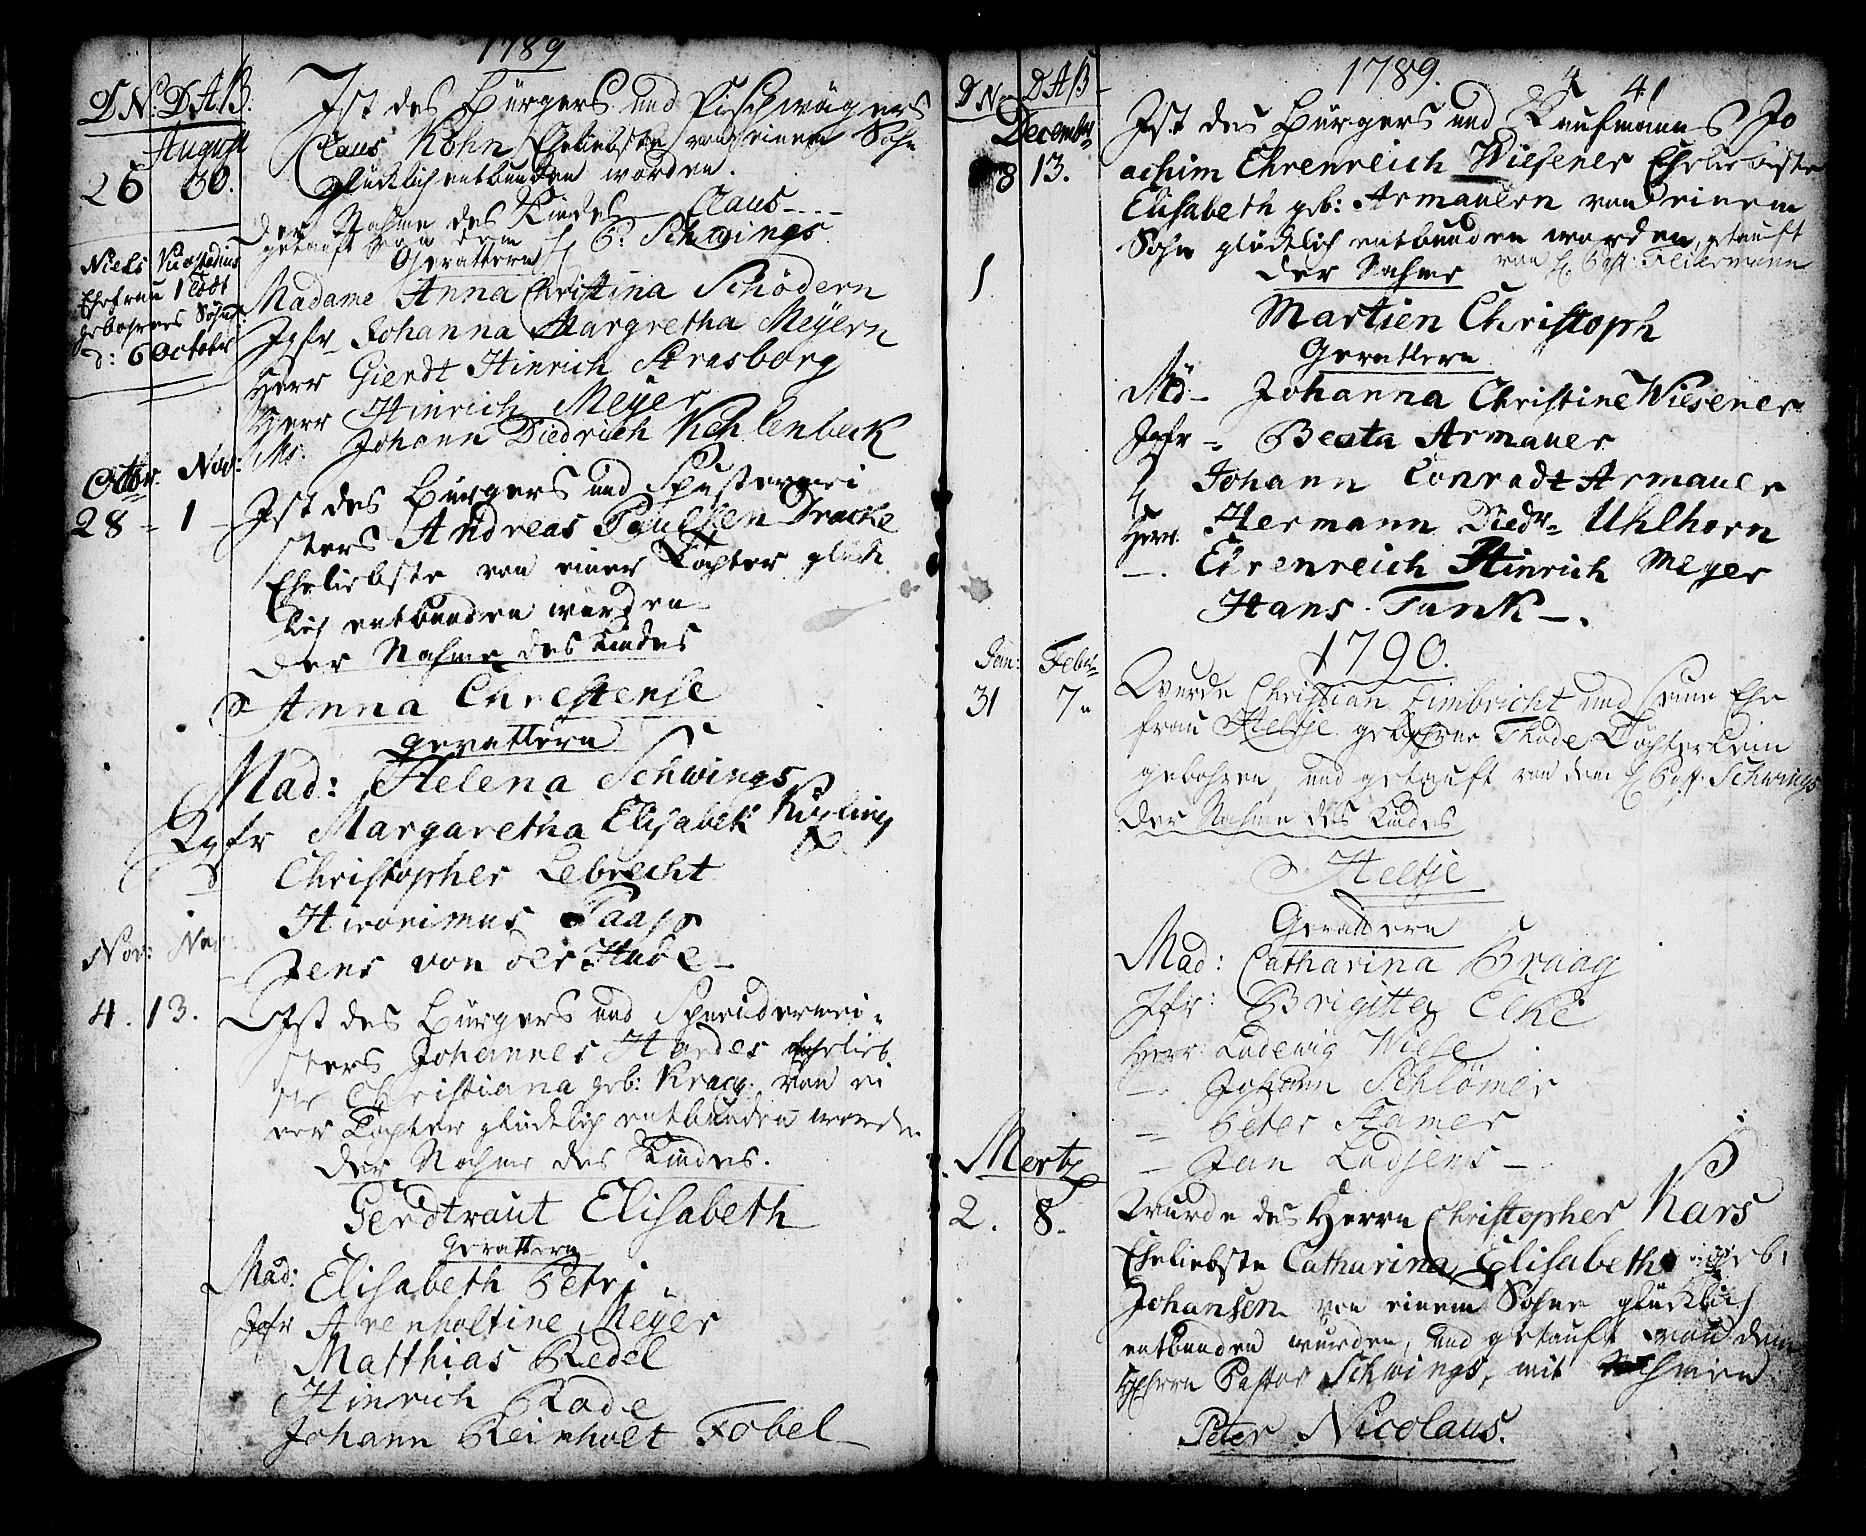 1789
D N. D A B.
August
26 30.
Ist des Bürgers und
Claus Köhn Eheliebste von einem Sohn
glücklich entbunden worden.
Der Nahme des Kindes Claus
getauft von dem H P: Schwings
Gevattern
Madame Anna Christina Schödern
Jgfr Johanna Margretha Meÿern
Herr Gierdt Hinrich Strasborg
Herr Hinrich Meÿer
Ms. Johann Diedrich Kehlenbeck
Niels
Ehefrau 1 todt
gebohrnes Söhnl.
d: 6 October
Octbr. Nov:
28 - 1 -
Ist des Bürgers und Schustermei
sters Andreas Paulsen Dracke
Eheliebste von einer Tochter glück
lich entbunden worden
Der Nahme des Kindes
Anna Chrestense
gevattern
Mad: Helena Schwings
Jgfr Margaretha Elisabeth Kipling
Christopher Lebrecht
Hironimus Paap
Jens von der Hude
Nov: Nov:
4. 13.
Ist des Bürgers und Schneidermei-
sters Johannes Hardes Ehelieb
ste Christiana geb: Kraag von ei
ner Tochter glücklich entbunden worden
Der Nahme des Kindes.
Gerdtraut Elisabeth
Gevattern
Mad: Elisabeth Petri
Jgfr Arenholtine Meÿer
Matthias Redel
Hinrich Rode
Johann Reinholt Fobel
1789.
41
D N. D A B
December
8 13.
Ist des Bürgers und Kaufmanns Jo
achim Ehrenreich Wiesener Eheliebste
Elisabeth geb: Armauern von einem
Sohn glücklich entbunden worden, getauft
von H. Past:
Der Nahme
Martien Christoph
Gevattern
Md- Johanna Christine Wiesener
Jgfr - Beata Armauer
Johann Conradt Armauer
Herr Hermann Diedr- Uhlhorn
-. Ehrenreich Hinrich Meyer
Hans Tank -.
1790.
Jan: Febr
31 7.
Wurde Christian Limbricht und seine Ehe
frau Heltje gebohrne Thode Töchterlein
gebohren, und getauft von dem H Past: Schwings
Der Nahme des Kindes
Heltje
Gevattern
Mad: Catharina Kraag
Jfr: Brigitte Elke
Herr Ludewig Wiese
- Johann Schlömer
- Peter Hamer
- Jan Lodjens -
Mertz
2. 8.
Wurde des Herrn Christopher Kars
Eheliebste Catharina Elisabeth geb:
Johansen von einem Sohne glücklich
entbunden wurden, und getauft von dem
Herrn Pastor Schwings, mit Nahmen
Peter Nicolaus.